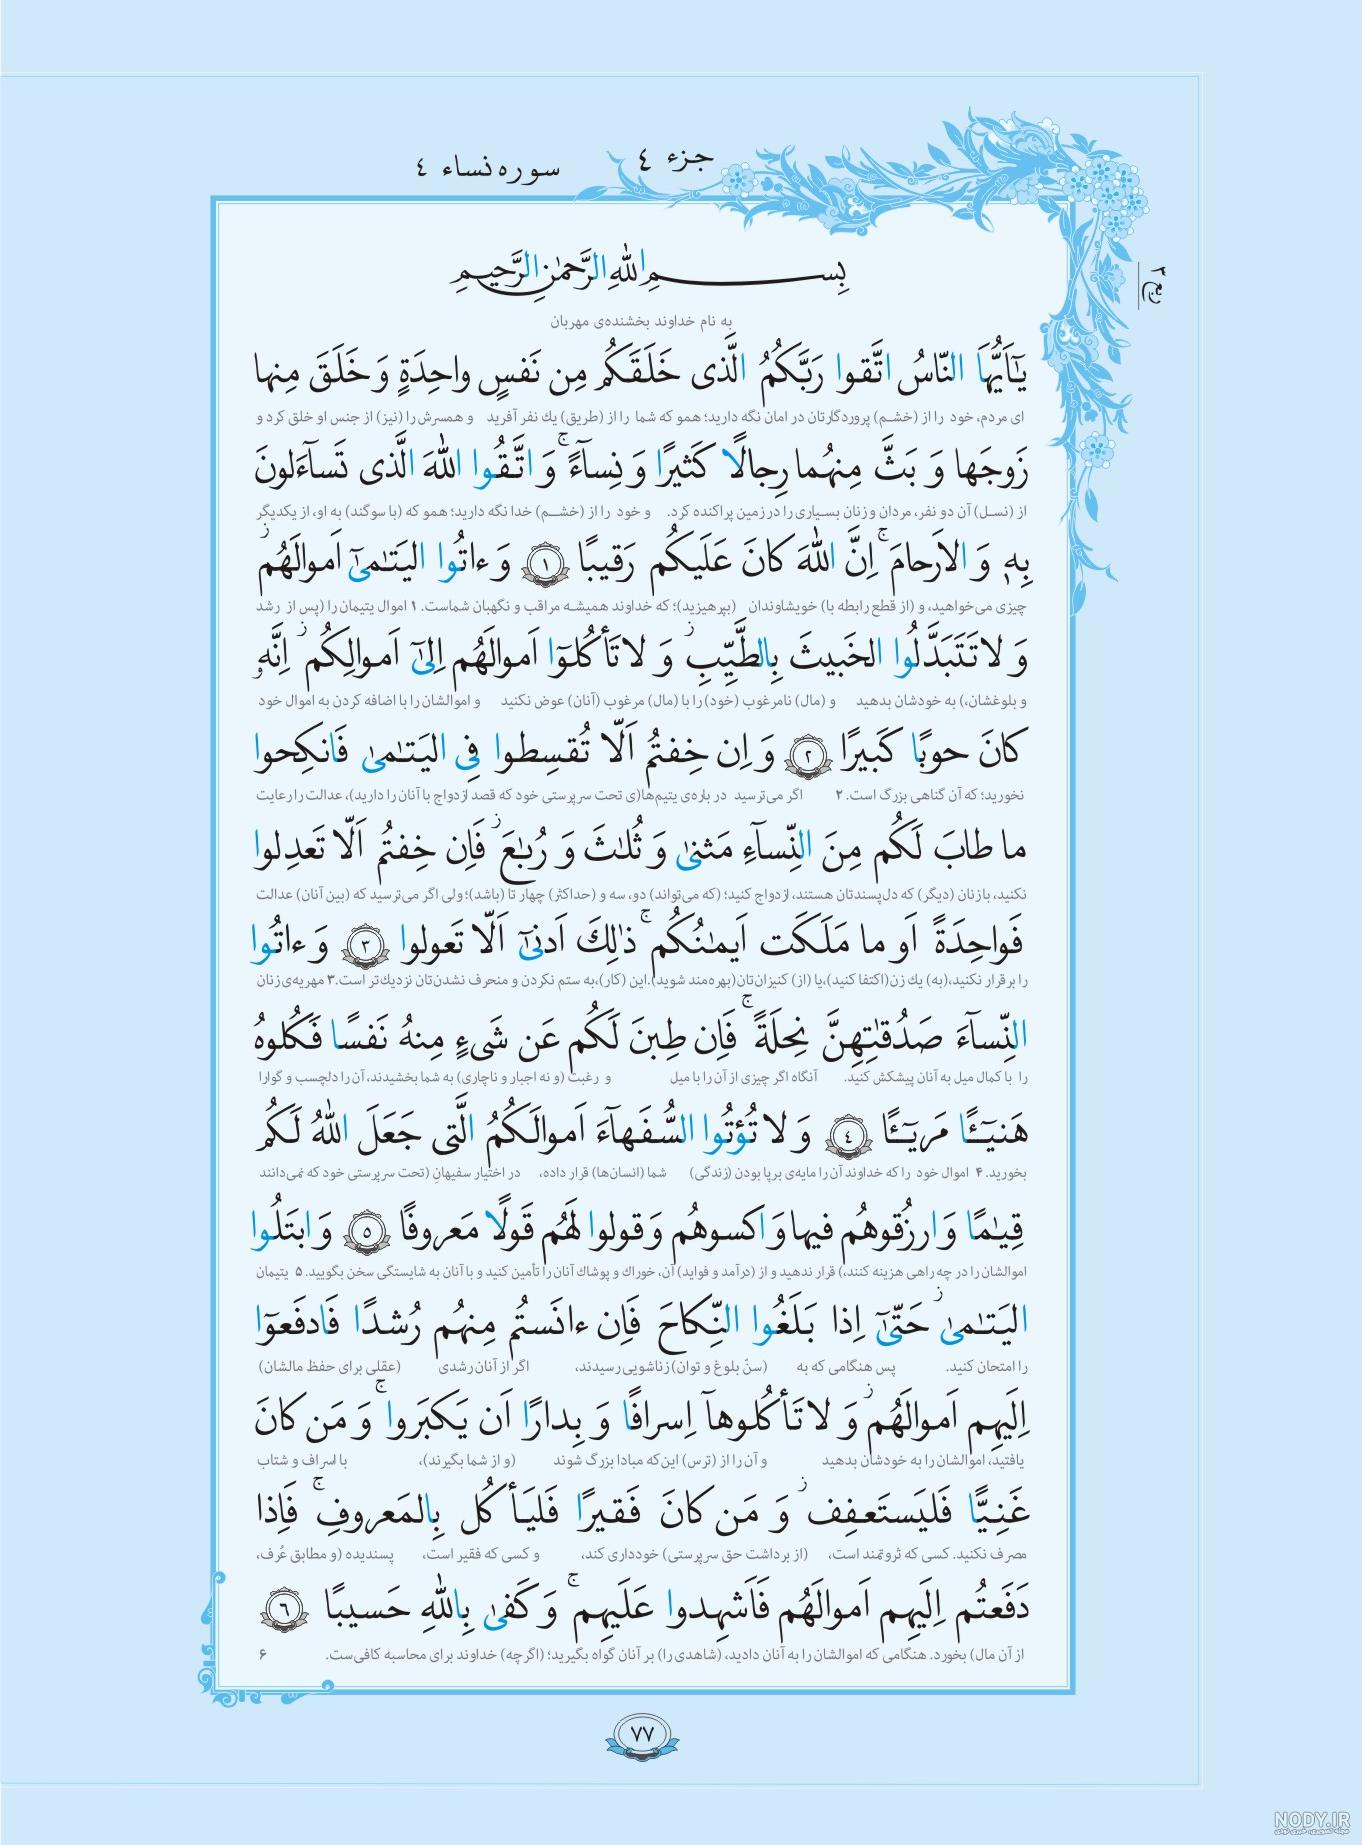 جزء ٤
سوره نساء ٤
ربع ٣
بِسمِ اللهِ الرَّحمٰنِ الرَّحیمِ
به نام خداوند بخشنده‌ی مهربان
یٰٓاَیُّهَا النّاسُ اتَّقوا رَبَّکُمُ الَّذی خَلَقَکُم مِن نَفسٍ واحِدَةٍ وَ خَلَقَ مِنها
ای مردم، خود را از (خشم) پروردگارتان در امان نگه دارید؛ همو که شما را از (طریق) یك نفر آفرید و همسرش را (نیز) از جنس او خلق کرد و
زَوجَها وَ بَثَّ مِنهُما رِجالًا کَثیرًا وَ نِسآءً ۚ وَ اتَّقُوا اللهَ الَّذی تَسآءَلونَ
از (نسل) آن دو نفر، مردان و زنان بسیاری را در زمین پراکنده کرد. و خود را از (خشم) خدا نگه دارید؛ همو که (با سوگند) به او، از یکدیگر
بِهٖ وَ الاَرحامَ ۚ اِنَّ اللهَ کانَ عَلَیکُم رَقیبًا ١ وَ ءاتُوا الیَتٰمیٰٓ اَموالَهُم ز
چیزی می‌خواهید، و (از قطع رابطه با) خویشاوندان (بپرهیزید)؛ که خداوند همیشه مراقب و نگهبان شماست. ۱ اموال یتیمان را (پس از رشد
وَ لا تَتَبَدَّلُوا الخَبیثَ بِالطَّیِّبِ ز وَ لا تَأکُلوٓا اَموالَهُم اِلیٰٓ اَموالِکُم ز اِنَّهٗ
و بلوغشان،) به خودشان بدهید و (مال) نامرغوب (خود) را با (مال) مرغوب (آنان) عوض نکنید و اموالشان را با اضافه کردن به اموال خود
کانَ حوبًا کَبیرًا ٢ وَ اِن خِفتُم اَلّا تُقسِطوا فِی الیَتٰمیٰ فَانکِحوا
نخورید؛ که آن گناهی بزرگ است. ۲ اگر می‌ترسید در باره‌ی یتیم‌ها(ی تحت سرپرستی خود که قصد ازدواج با آنان را دارید)، عدالت را رعایت
ما طابَ لَکُم مِنَ النِّسآءِ مَثنیٰ وَ ثُلٰثَ وَ رُبٰعَ ز فَاِن خِفتُم اَلّا تَعدِلوا
نکنید، با زنان (دیگر) که دل‌پسندتان هستند، ازدواج کنید؛ (که می‌تواند) دو، سه و (حداکثر) چهار تا (باشد)؛ ولی اگر می‌ترسید که (بین آنان) عدالت
فَواحِدَةً اَو ما مَلَکَت اَیمٰنُکُم ۚ ذٰلِكَ اَدنیٰٓ اَلّا تَعولوا ٣ وَ ءاتُوا
را برقرار نکنید،(به) یك زن(اکتفا کنید)،یا (از) کنیزان‌تان(بهره‌مند شوید).این (کار)،به ستم نکردن و منحرف نشدن‌تان نزدیك‌تر است.۳ مهریه‌ی زنان
النِّسآءَ صَدُقٰتِهِنَّ نِحلَةً ۚ فَاِن طِبنَ لَکُم عَن شَیءٍ مِنهُ نَفسًا فَکُلوهُ
را با کمال میل به آنان پیشکش کنید. آنگاه اگر چیزی از آن را با میل و رغبت (و نه اجبار و ناچاری) به شما بخشیدند، آن را دلچسب و گوارا
هَنیٓـًٔا مَریٓـًٔا ٤ وَ لا تُؤتُوا السُّفَهآءَ اَموالَکُمُ الَّتی جَعَلَ اللهُ لَکُم
بخورید. ۴ اموال خود را که خداوند آن را مایه‌ی برپا بودن (زندگی) شما (انسان‌ها) قرار داده، در اختیار سفیهان (تحت سرپرستی خود که نمی‌دانند
قِیٰمًا وَ ارزُقوهُم فیها وَ اکسوهُم وَ قولوا لَهُم قَولًا مَعروفًا ٥ وَ ابتَلُوا
اموالشان را در چه راهی هزینه کنند،) قرار ندهید و از (درآمد و فواید) آن، خوراك و پوشاك آنان را تأمین کنید و با آنان به شایستگی سخن بگویید. ۵ یتیمان
الیَتٰمیٰ ز حَتّیٰٓ اِذا بَلَغُوا النِّکاحَ فَاِن ءانَستُم مِنهُم رُشدًا فَادفَعوٓا
را امتحان کنید. پس هنگامی که به (سنّ بلوغ و توان) زناشویی رسیدند، اگر از آنان رشدی (عقلی برای حفظ مالشان)
اِلَیهِم اَموالَهُم ز وَ لا تَأکُلوهآ اِسرافًا وَ بِدارًا اَن یَکبَروا ۚ وَ مَن کانَ
یافتید، اموالشان را به خودشان بدهید و آن را از (ترس) این‌که مبادا بزرگ شوند (و از شما بگیرند)، با اسراف و شتاب
غَنِیًّا فَلیَستَعفِف ز وَ مَن کانَ فَقیرًا فَلیَأکُل بِالمَعروفِ ۚ فَاِذا
مصرف نکنید. کسی که ثروتمند است، (از برداشت حق سرپرستی) خودداری کند، و کسی که فقیر است، پسندیده (و مطابق عُرف،
دَفَعتُم اِلَیهِم اَموالَهُم فَاَشهِدوا عَلَیهِم ۚ وَ کَفیٰ بِاللهِ حَسیبًا ٦
از آن مال) بخورد. هنگامی که اموالشان را به آنان دادید، (شاهدی را) بر آنان گواه بگیرید؛ (اگرچه) خداوند برای محاسبه کافی‌ست. ۶
٧٧
NODY.IR